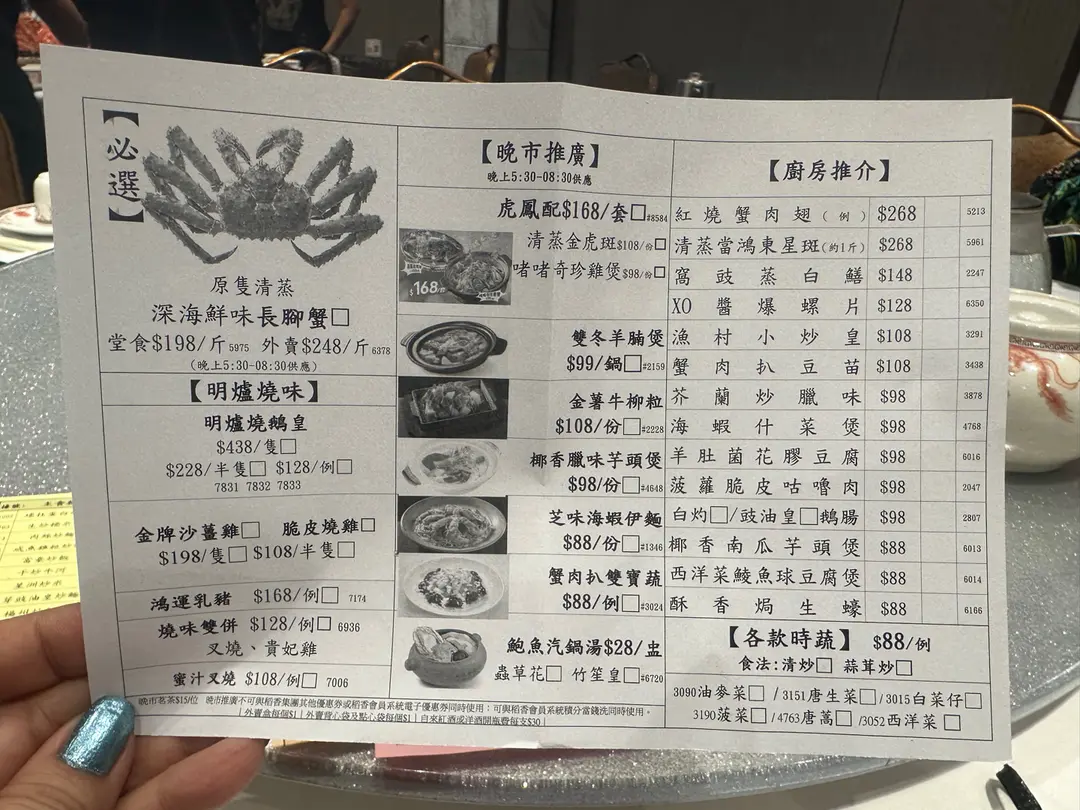 【必選】
原隻清蒸
深海鮮味長腳蟹□
堂食$198/斤 5975 外賣$248/斤 6378
(晚上5:30-08:30供應)
【明爐燒味】
明爐燒鵝皇
$438/隻□
$228/半隻□ $128/例□
7831 7832 7833
金牌沙薑雞□ 脆皮燒雞□
$198/隻□ $108/半隻□
鴻運乳豬 $168/例□ 7174
燒味雙併 $128/例□ 6936
叉燒、貴妃雞
蜜汁叉燒 $108/例□ 7006
【晚市推廣】
晚上5:30-08:30供應
虎鳳配$168/套□#8584
清蒸金虎斑$108/份□
啫啫奇珍雞煲$98/份□
$168/套
雙冬羊腩煲
$99/鍋□#2159
金薯牛柳粒
$108/份□#2228
椰香臘味芋頭煲
$98/份□#4648
芝味海蝦伊麵
$88/份□#1346
蟹肉扒雙寶蔬
$88/例□#3024
鮑魚汽鍋湯$28/盅
蟲草花□ 竹笙皇□#6720
【廚房推介】
紅燒蟹肉翅(例) $268 5213
清蒸當鴻東星斑(約1斤) $268 5961
窩豉蒸白鱔 $148 2247
XO醬爆螺片 $128 6350
漁村小炒皇 $108 3291
蟹肉扒豆苗 $108 3438
芥蘭炒臘味 $98 3878
海蝦什菜煲 $98 4768
羊肚菌花膠豆腐 $98 6016
菠蘿脆皮咕嚕肉 $98 2047
白灼□/豉油皇□鵝腸 $98 2807
椰香南瓜芋頭煲 $88 6013
西洋菜鯪魚球豆腐煲 $88 6014
酥香焗生蠔 $88 6166
【各款時蔬】 $88/例
食法:清炒□ 蒜茸炒□
3090油麥菜□ /3151唐生菜□/3015白菜仔□
3190菠菜□ /4763唐蒿□/3052西洋菜□
晚市茗茶$15/位 晚市推廣不可與稻香集團其他優惠券或稻香會員系統電子優惠券同時使用;可與稻香會員系統積分當錢洗同時使用。
|外賣盒每個$1| 外賣背心袋及點心袋每個$1| 自來紅酒或洋酒開瓶費每支$30|